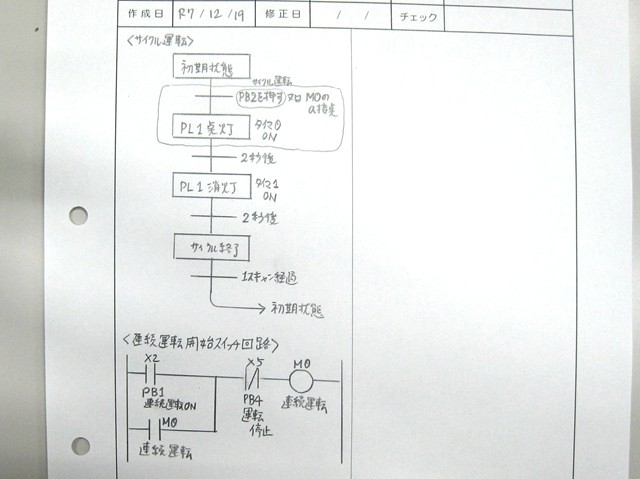 作成日 R7/12/19 修正日 / / チェック
<サイクル運転>
初期状態
サイクル運転
PB2を押す 又は M0の
a接点
PL1点灯 タイマ0
ON
2秒後
PL1消灯 タイマ1
ON
2秒後
サイクル終了
1スキャン経過
初期状態
<連続運転開始スイッチ回路>
X2 X5 M0
PB1 PB4 連続運転
連続運転ON 運転
停止
M0
連続運転